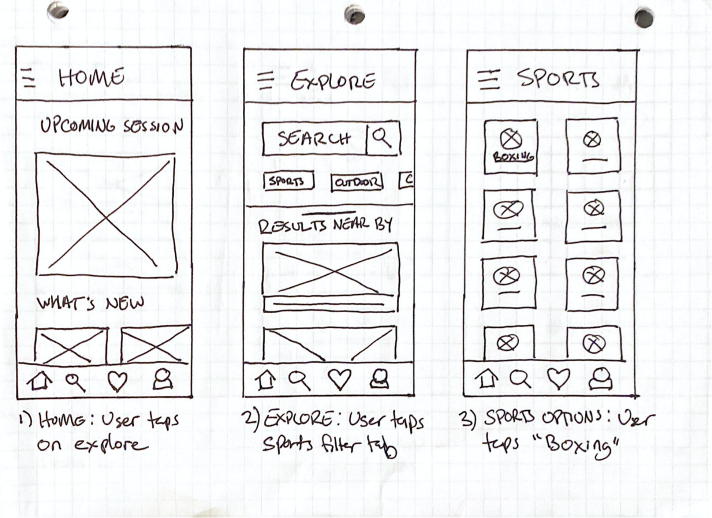 HOME
UPCOMING SESSION
WHAT'S NEW
1) HOME: User taps
on explore
EXPLORE
SEARCH
SPORTS OUTDOOR C
RESULTS NEAR BY
2) EXPLORE: User taps
Sports filter tab
SPORTS
BOXING
3) SPORTS OPTIONS: User
taps "Boxing"